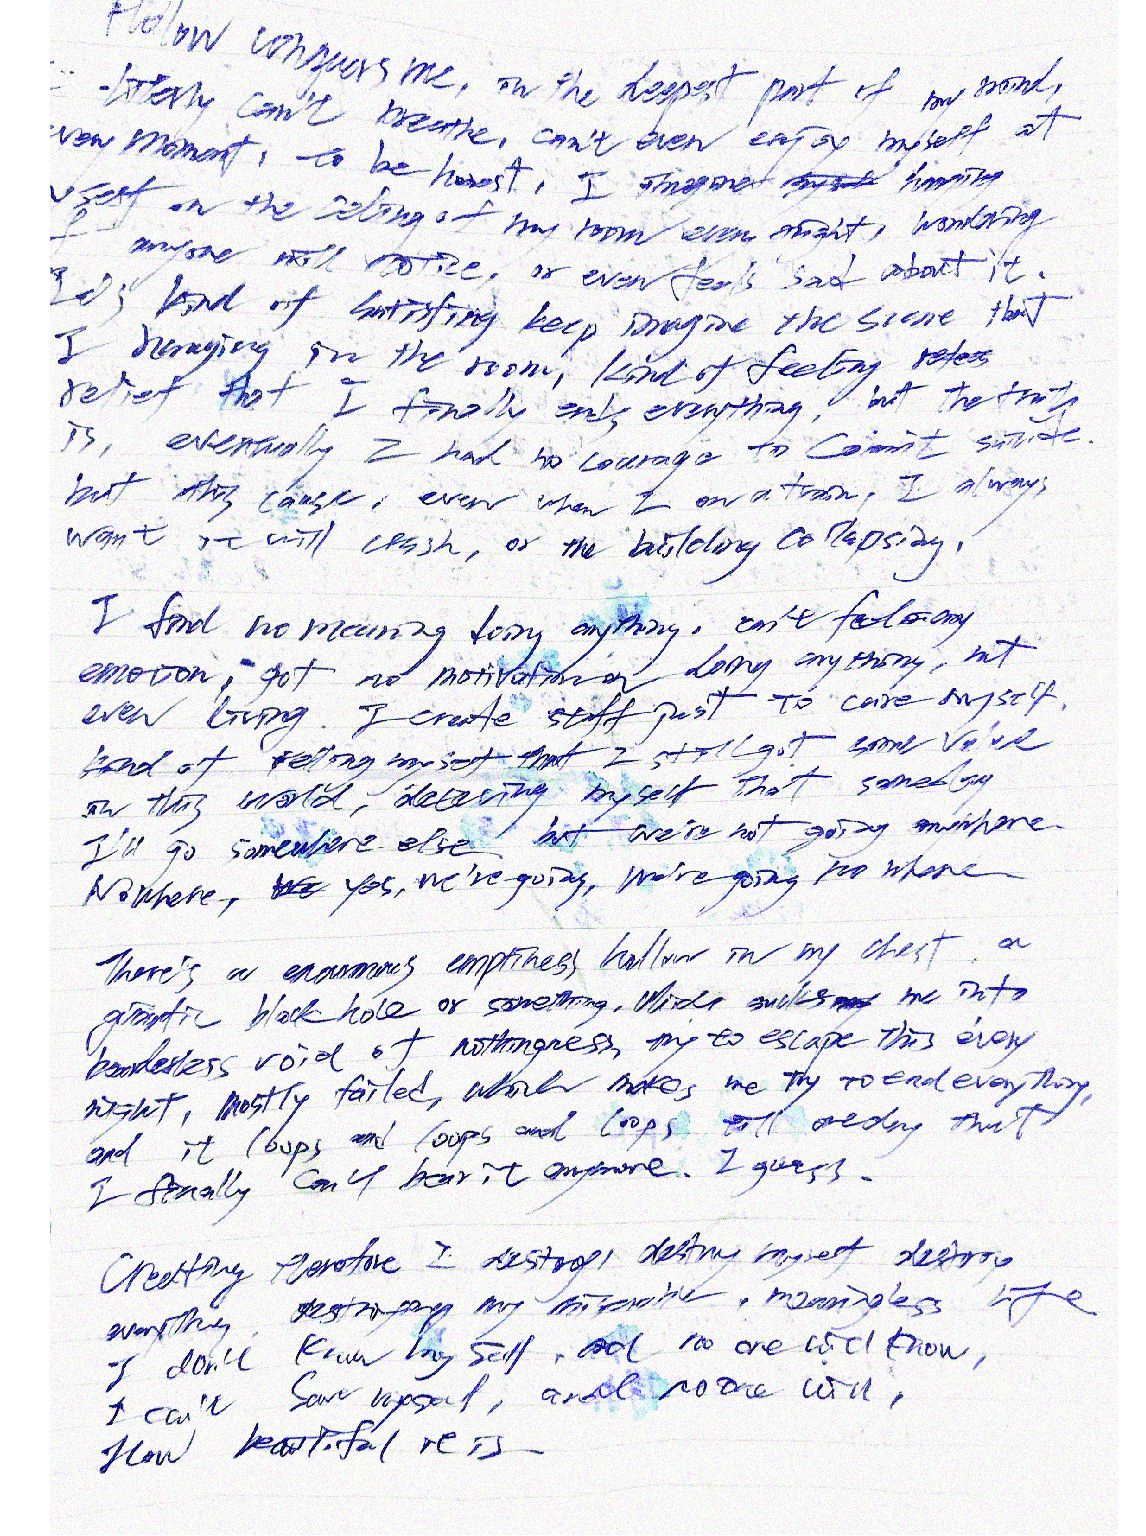 Hollow conquers me, in the deepest part of my mind,
literly can't breathe, can't even enjoy myself at
every moment, to be honest, I imagine hanging
myself on the celing of my room every night, wondering
if anyone will notice, or even feels sad about it.
It's kind of satisfing keep imagine the scene that
I hanging in the room, kind of feeling
relief that I finally ends everything, but the truth
is, eventually I had no courage to Commit suicide.
but this cause, even when I on a train, I always
want it will crash, or the building collapsing.
I find no meaning doing anything. can't feel any
emotion, got no motivation on doing anything, not
even living. I create stuff just to save myself.
kind of telling myself that I still got some value
in this world, deceiving myself that someday
I'll go somewhere else but we're not going anywhere
Nowhere, yes, we're going, we're going no where
There's a enormous emptiness hollow in my chest a
gigantic black hole or something. Which sucks me into
borderless void of nothingness, try to escape this every
night, mostly failed, which makes me try to end everything,
and it loops and loops and loops till oneday that
I finally can't bear it anymore. I guess.
Creating therefore I destroy, destroy myself destroy
everything, destroying my miserable, meaningless life
I don't know myself, and no one will know,
I can't save myself, and no one will,
How beautiful it is